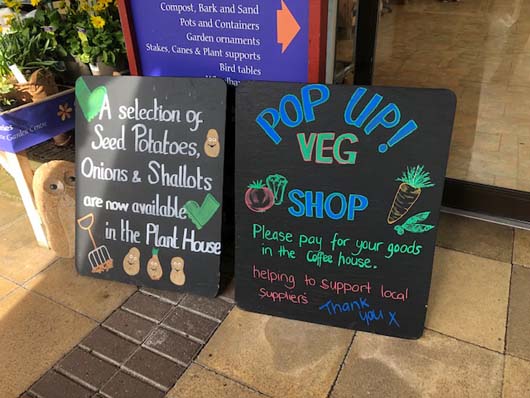 Compost, Bark and Sand
Pots and Containers
Garden ornaments
Stakes, Canes & Plant supports
Bird tables
Garden Centre
A selection of
Seed Potatoes,
Onions & Shallots
are now available
in the Plant House
POP UP!
VEG
SHOP
Please pay for your goods
in the Coffee house.
helping to support local
suppliers
Thank
you x